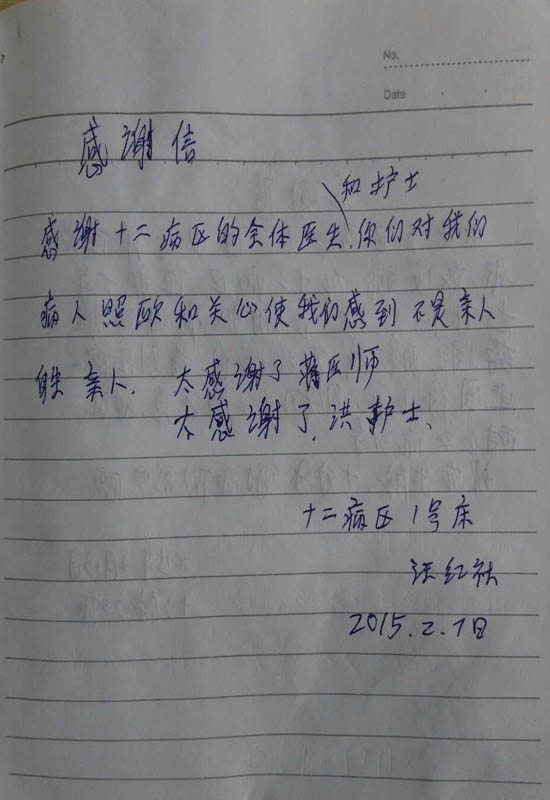 No.
Date
感谢信
和护士
感谢十二病区的全体医生.你们对我们
病人照顾和关心使我们感到不是亲人
胜亲人. 太感谢了蒋医师
太感谢了.洪护士、
十二病区1号床
张红社
2015.2.7日